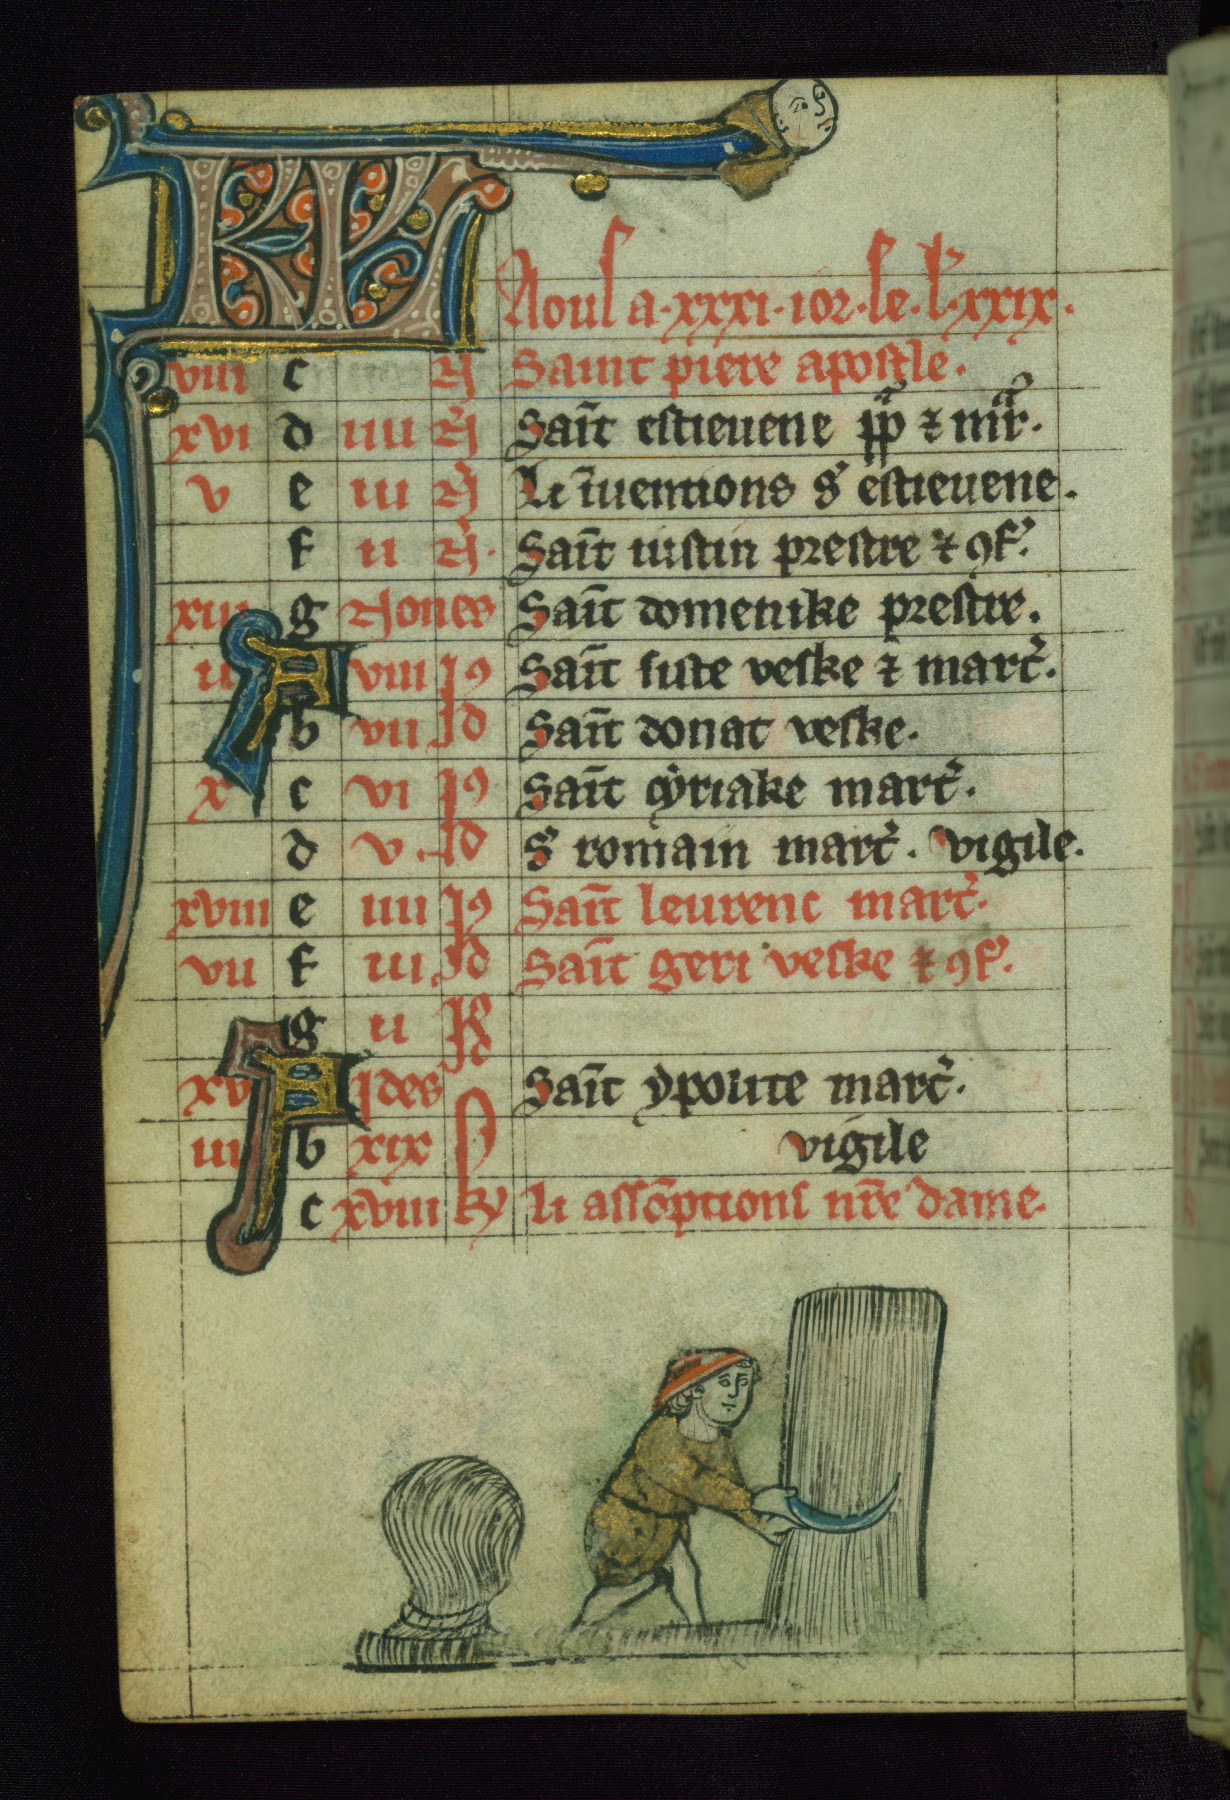 KL Aoust a·xxxi·ior·le·l'·xxix·
viii c N Saint piere apostle·
xvi d iiii N Saīt estieuene pp̄ ⁊ mr̄·
v e iii N Li īuentions s' estieuene·
f ii N· Saīt iustin prestre ⁊ ꝯf'·
xiii g Nones Saīt domenike prestre·
ii A viii Id Saīt siste veske ⁊ mart'·
b vii Id Saīt donat veske·
x c vi Id Saīt cyriake mart'·
d v· Id S' romain mart'· vigile·
xviii e iiii Id Saīt leurenc mart'·
vii f iii Id Saīt geri veske ⁊ ꝯf'·
g ii Id
xv A Ides Saīt ypolite mart'·
iiii b xix vigile
c xviii kl Li assōptions nr̄e dame·